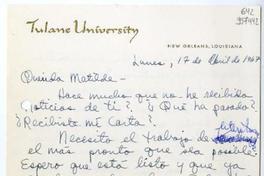 642
957442
Tulane University
NEW ORLEANS, LOUISIANA
Lunes, 17 de Abril de 1967
Querida Matilde -
Hace mucho que no he recibido
noticias de ti?. ¿Qué ha pasado?
¿Recibiste mi Carta?
Necesito el trabajo de
el más pronto que sea posible.
Espero que está listo y que ya